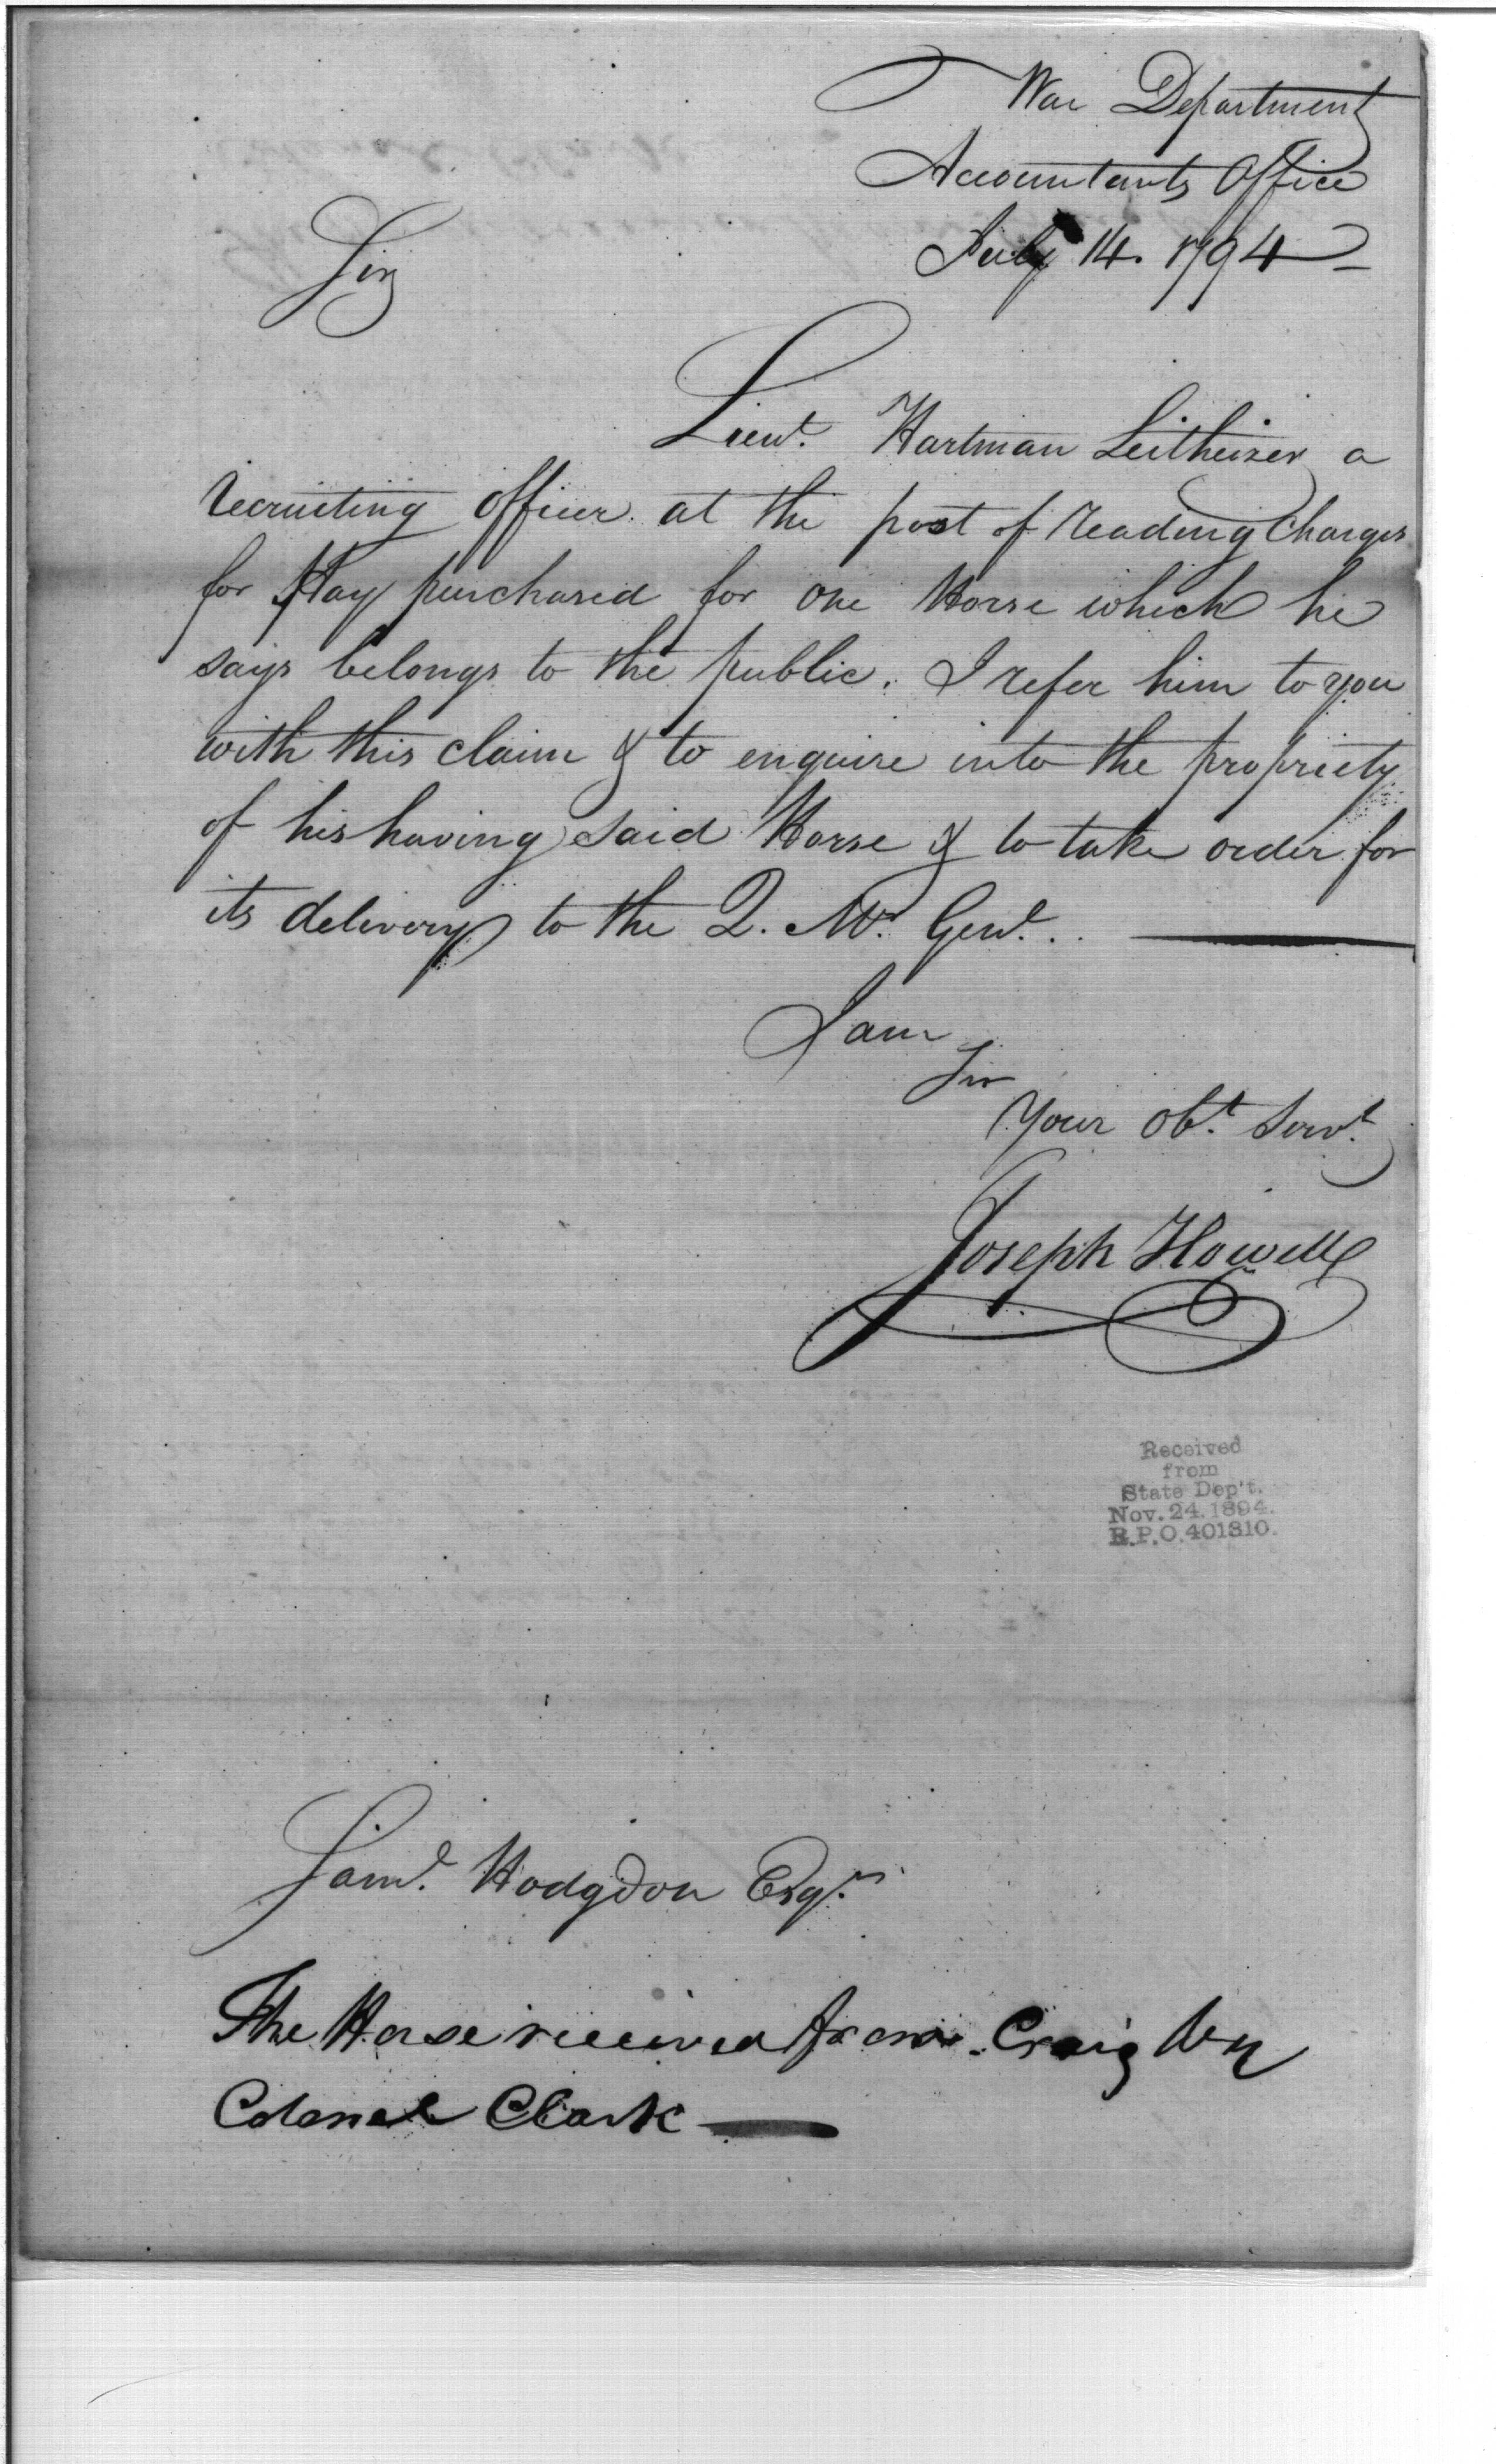 War Department
Accountants Office
July 14. 1794
Sir
Lieut. Hartman Leitheizer a
recruiting officer at the post of reading Charges
for Hay purchased for one Horse which he
says belongs to the public. I refer him to you
with this claim & to enquire into the propriety
of his having said Horse & to take order for
its delivery to the Q. Mr. Genl.
I am
Sir
Your Obt. Servt.
Joseph Howell
Received
from
State Dep't.
Nov. 24. 1894.
R.P.O. 401310.
Saml. Hodgdon Esqr.
The Horse received from Craig by
Colonel Clark